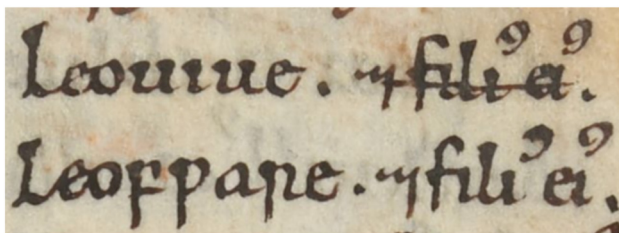 Leouiue. ⁊ filiꝰ eiꝰ.
Leofƿare. ⁊ filiꝰ eiꝰ.